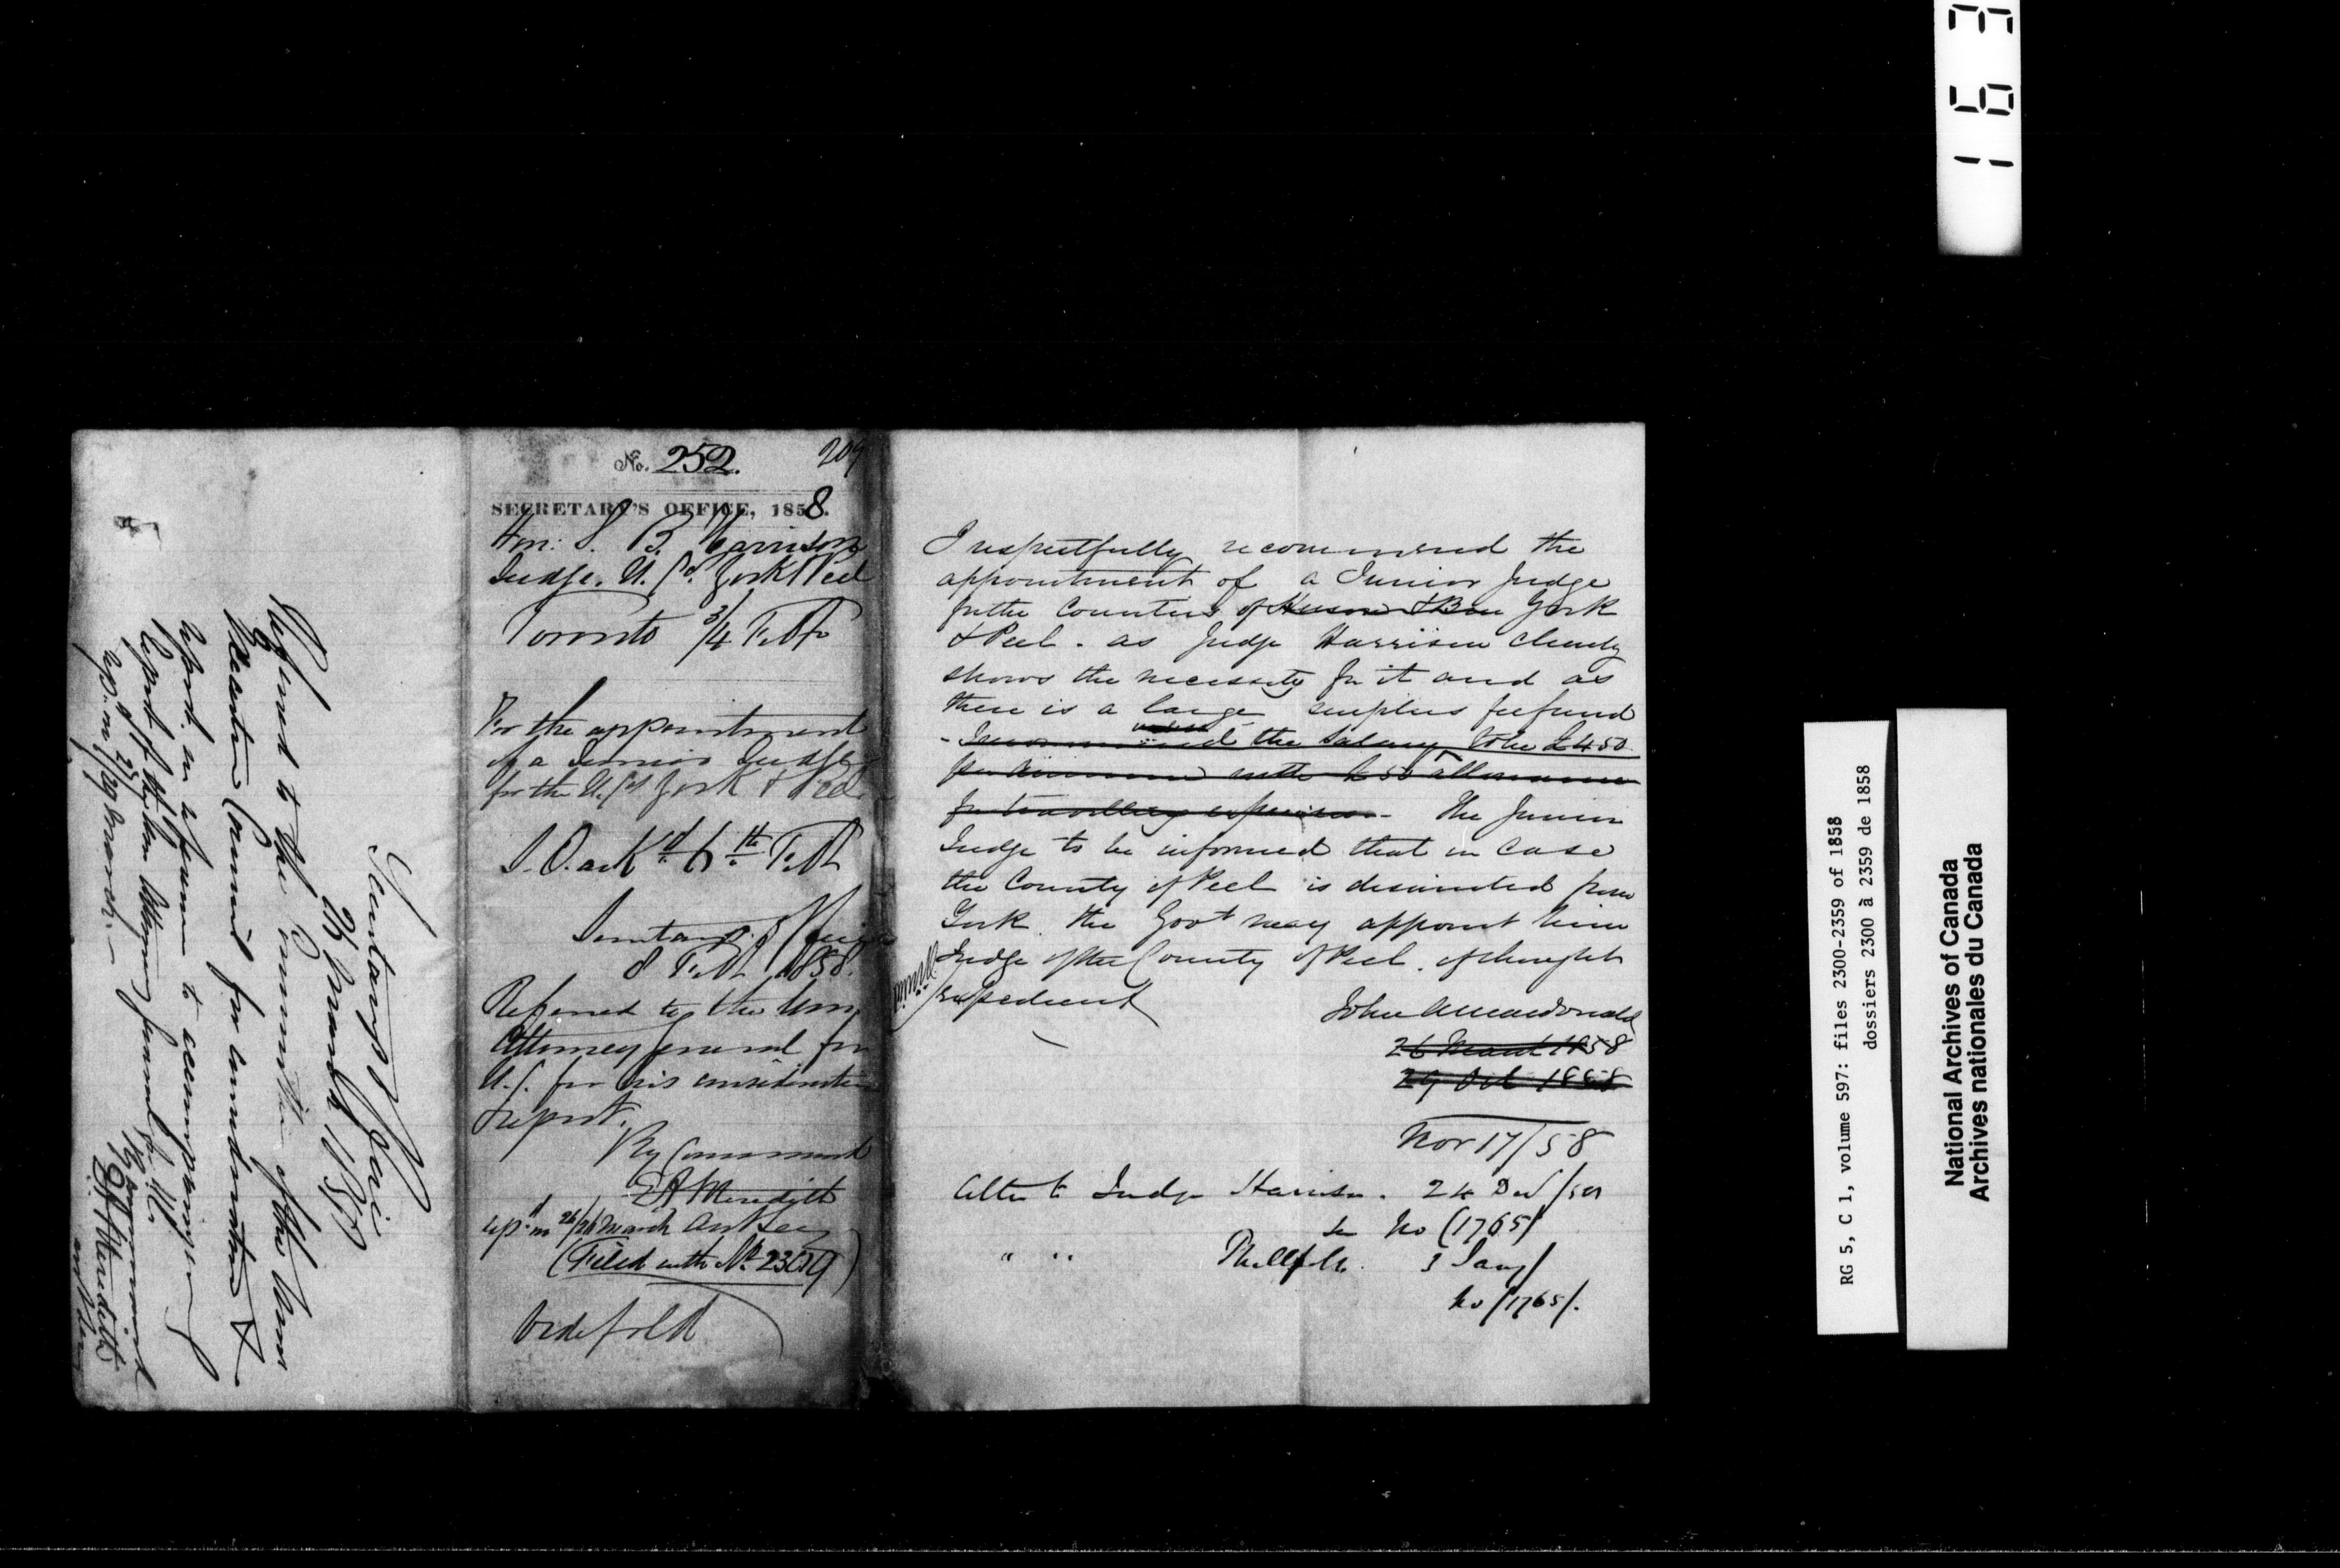 163
No. 252.
209
SECRETARY'S OFFICE, 1858.
Hon: S. B. Harrison
Judge. U. Cs. York & Peel
Toronto 3/4 Feb
For the appointment
of a Junior Judge
for the U. Cs York & Peel
S.O. ackd. 6th. Feb
Secretary's Office
8 Feb 1858.
Referred to the Hon.
Attorney General for
U.C. for his consideration
& report.
By Command
E A Meredith
Rep.d in 26/26 March
(Filed with No 2309)
Refered to the Committee of the Hon
Executive Council for consideration &
report on reference to accompanying
Report of the Hon Attorney General for U.C.
By Command
E A Meredith
Secretary's Office
29 March 1858
I respectfully recommend the
appointment of a Junior Judge
for the Counties of Huron & Bruce York
& Peel. as Judge Harrison clearly
shows the necessity for it and as
there is a large surplus fee fund
- I recommend the salary to be £450
per annum with £50 allowance
for travelling expenses. The Junior
Judge to be informed that in case
the County of Peel is disunited from
York. the Govt may appoint him
Judge of the County of Peel. if thought
expedient
John A Macdonald
26 March 1858
29 Oct 1858
Nov 17/58
Letter to Judge Harrison. 24 Dec/58
In No (1765)
" " 3 Jany/
No /1765/.
RG 5, C 1, volume 597: files 2300-2359 of 1858
dossiers 2300 à 2359 de 1858
National Archives of Canada
Archives nationales du Canada